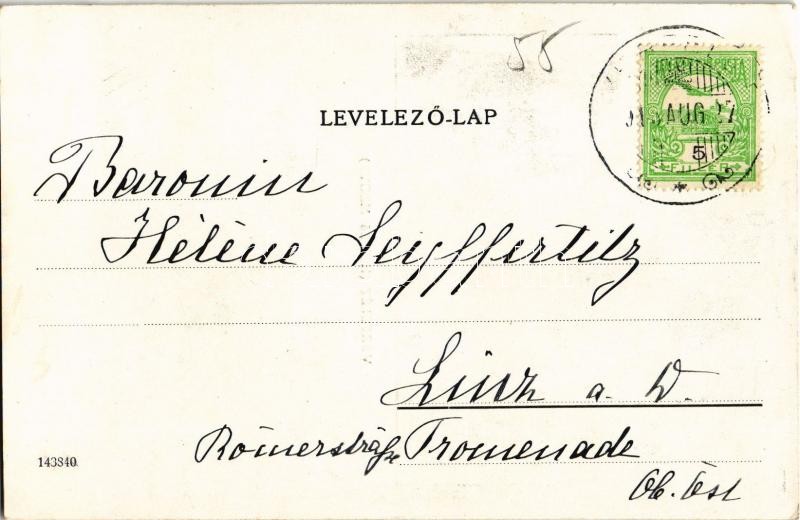 55
LEVELEZŐ-LAP
AUG 27
5
Baronin
Hélène Seyffertitz
Linz a. D.
Römerstraße Promenade
Ob. Öst
143840